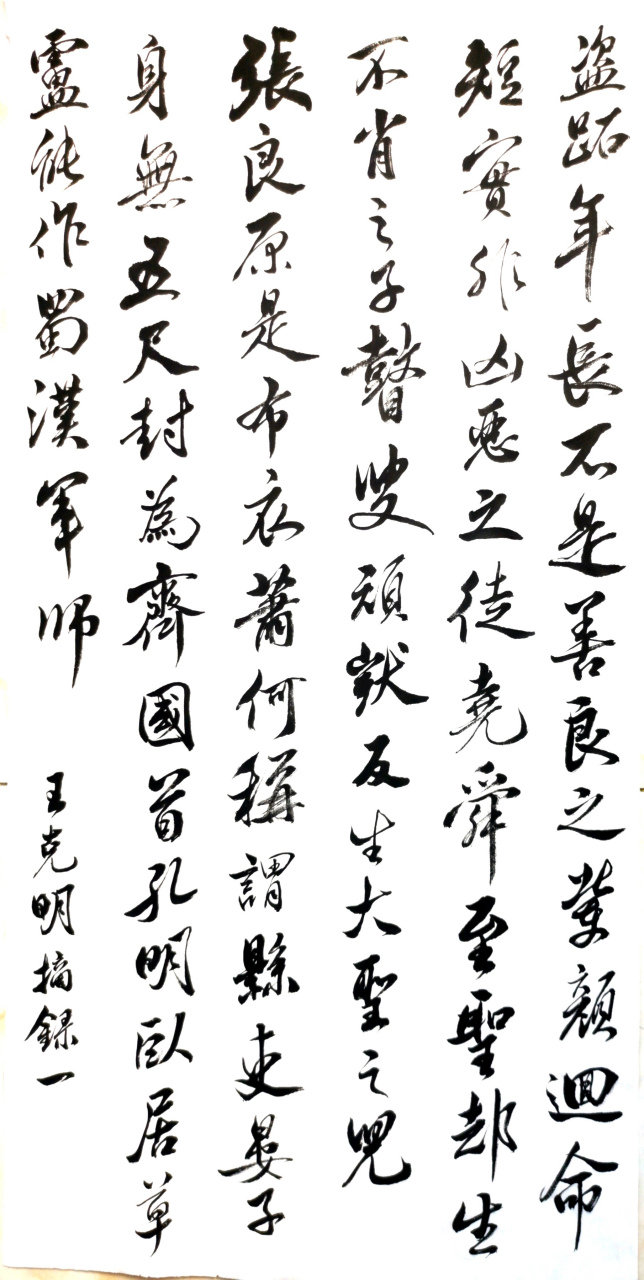 盜跖年長不是善良之輩顏迴命
短實非凶惡之徒堯舜至聖却生
不肖之子瞽叟頑獃反生大聖之兒
張良原是布衣蕭何稱謂縣吏晏子
身無五尺封為齊國首孔明臥居草
廬能作蜀漢軍師
王克明摘錄一